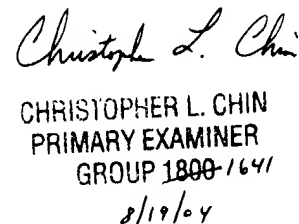 Christopher L. Chin
CHRISTOPHER L. CHIN
PRIMARY EXAMINER
GROUP 1800-1641
8/19/04